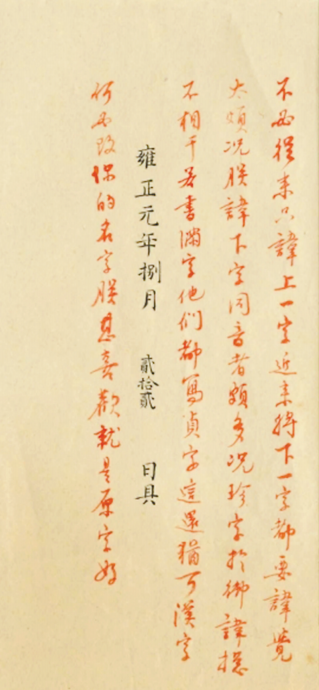 不必從來只諱上一字近來將下一字都要諱覺
太煩况朕諱下字同音者頗多况珍字於御諱總
不相干若書滿字他們都寫貞字這還猶可漢字
雍正元年捌月 貳拾貳 日具
何必改你的名字朕甚喜歡就是原字好